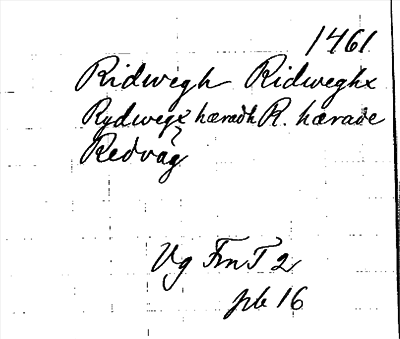 1461
Ridwegh Ridweghx
Rydwegx hæradh R. hærade
Redväg
Vg FmT 2
pb 16